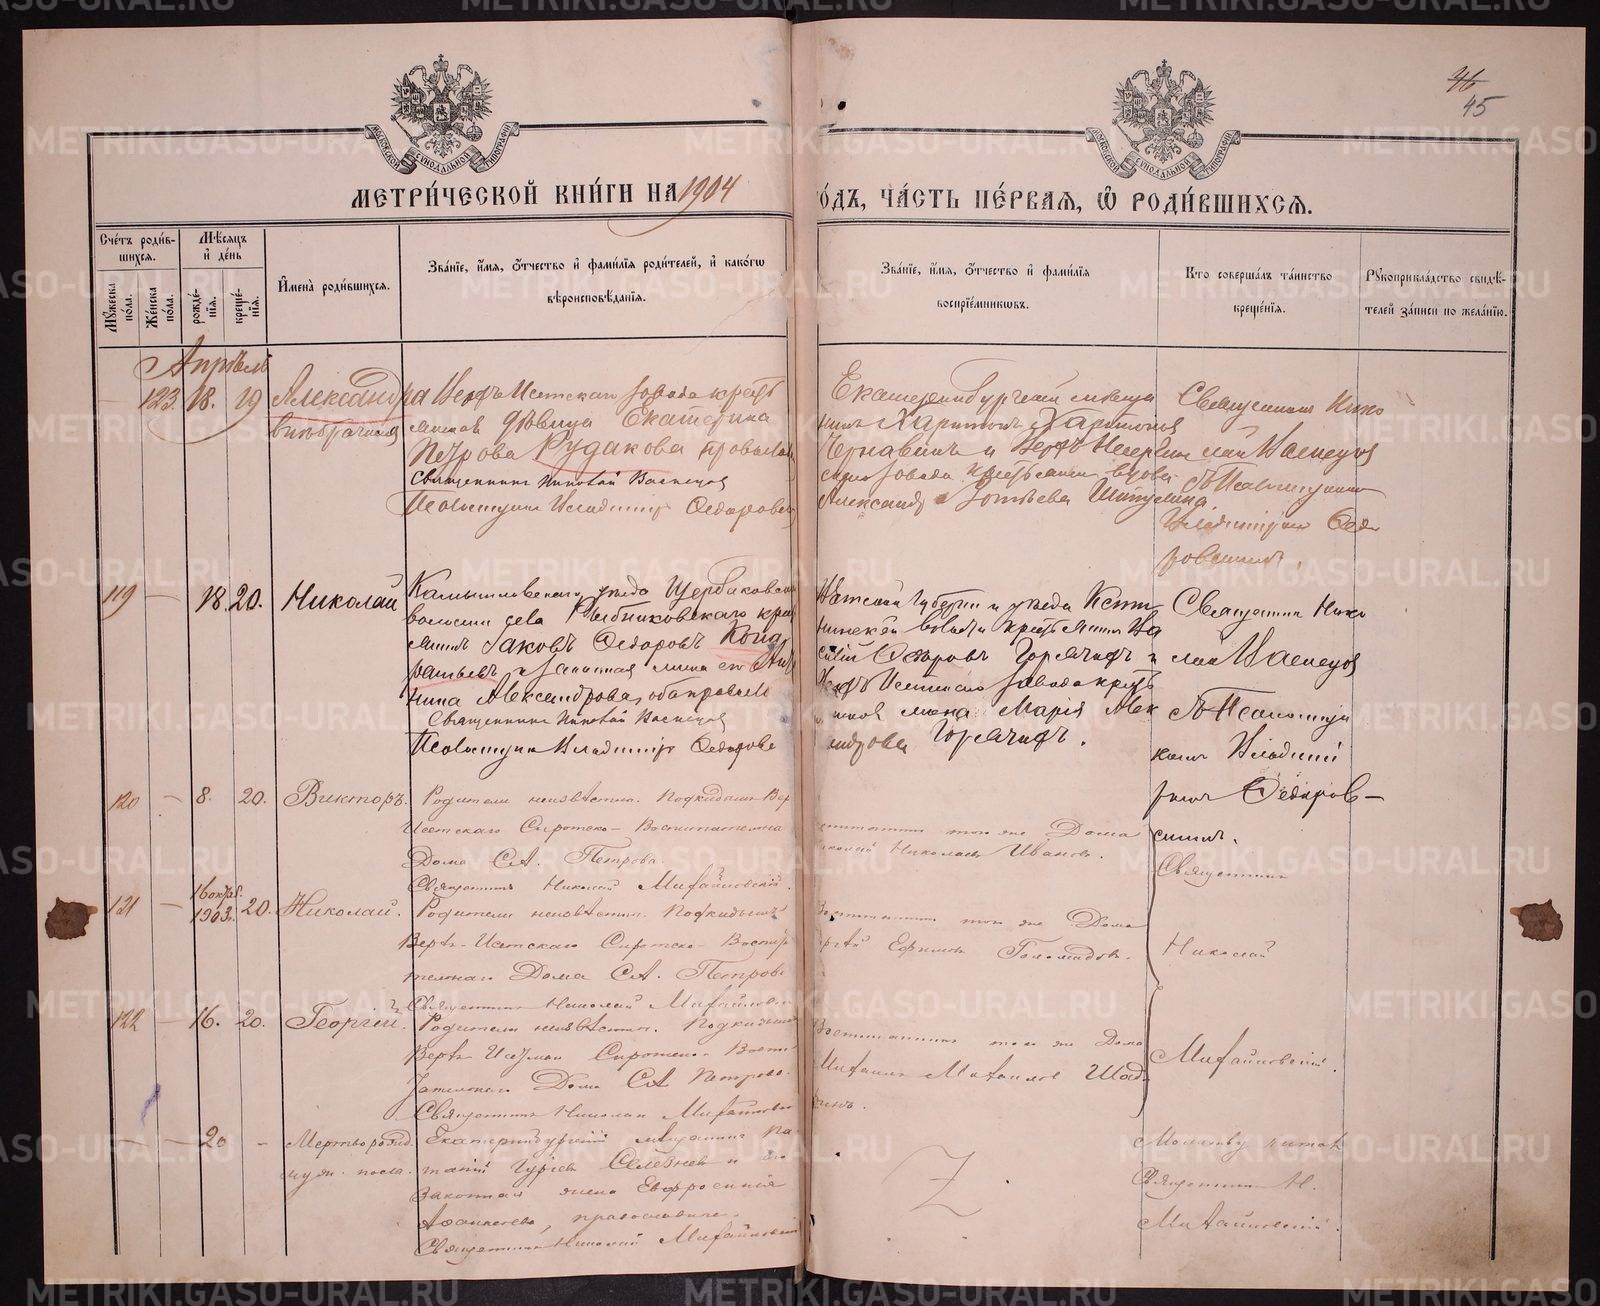 46
45
МЕТРИ́ЧЕСКОЙ КНИ́ГИ НА 1904
ГО́ДЪ, ЧА́СТЬ ПЕ́РВАЯ, Ѡ҆ РОДИ́ВШИХСЯ.
Сче́тъ роди́в-
шихся.
Мѣ́сяцъ
и҆ де́нь
Мꙋ́жеска по́ла.
Же́нска по́ла.
рожде́-
нїя.
креще́-
нїя.
И҆мена̀ роди́вшихся.
Зва́нїе, и҆́мя, ѻ҆́тчество и҆ фами́лїя роди́телей, и҆ како́гѡ
вѣроисповѣ́данїя.
Зва́нїе, и҆́мя, ѻ҆́тчество и҆ фами́лїя
воспрїе́мникѡвъ.
Кто̀ соверша́лъ та́инство
креще́нїя.
Рꙋкоприкла́дство свидѣ́-
телей за́писи по жела́нїю.
Апрѣль
123. 18. 19 Александра
внѣбрачная
Верхъ-Исетскаго завода кресть
янская дѣвица Екатерина
Петрова Рудакова православн
Священникъ Николай Васнецов
Псаломщикъ Владимір Ѳедоровс
Екатеринбургскій мѣща
нинъ Харитонъ Харитонов
Чернавинъ и Верхъ-Исет
скаго завода крестьянская вдова
Александра Зотѣева Шипулина
Священникъ Нико
лай Васнецов
съ Псаломщикомъ
Владиміромъ Ѳедо
ровскимъ.
119 — 18. 20. Николай
Камышловскаго уѣзда Щербаковской
волости села Рыбниковскаго крест
янинъ Іаковъ Ѳедоровъ Конд
ратьевъ и законная жена его Ан
нина Александрова, оба правосл
Священникъ Николай Васнецов
Псаломщикъ Владиміръ Ѳедоровс
Вятской губерніи и уѣзда
волости крестьянинъ Ва
силій Ѳедоровъ Горячихъ и
Верхъ-Исетскаго завода кресть
янская жена Марія Алек
сандрова Горячихъ.
Священникъ Нико
лай Васнецов
съ Псаломщи
комъ Владимі
ромъ Ѳедоров—
скимъ.
120 — 8. 20. Викторъ.
Родители неизвѣстны. Подкидышъ Вер
Исетскаго Сиротско-Воспитательна
Дома С.А. Петрова.
Священникъ Николай Михайловскій.
Воспитанникъ того же Дома
Николай Николаевъ Ивановъ.
Священникъ
121 — 16 октб. 1903. 20. Николай.
Родители неизвѣстны. Подкидышъ
Верхъ-Исетскаго Сиротско-Воспи
тельнаго Дома С.А. Петрова
Священникъ Николай Михайловск
Воспитанникъ того же Дома
Сергѣй Ефимовъ Голомидовъ.
Николай
122 — 16. 20. Георгій.
Родители неизвѣстны. Подкидышъ
Верхъ-Исетскаго Сиротско-Воспи
тательнаго Дома С.А. Петрова.
Священникъ Николай Михайловск
Воспитанникъ того же Дома
Михаилъ Михаиловъ Шад
ринъ.
Михайловскій.
— — 20 — Мертворожд.
муж. пола.
Екатеринбургскій мѣщанинъ
Гурьевъ Селезневъ и его
законная жена Евфросинія
православные.
Священникъ Николай Михайловскій
Молитву читалъ
Священникъ Н.
Михайловскій.
METRIKI.GASO-URAL.RU